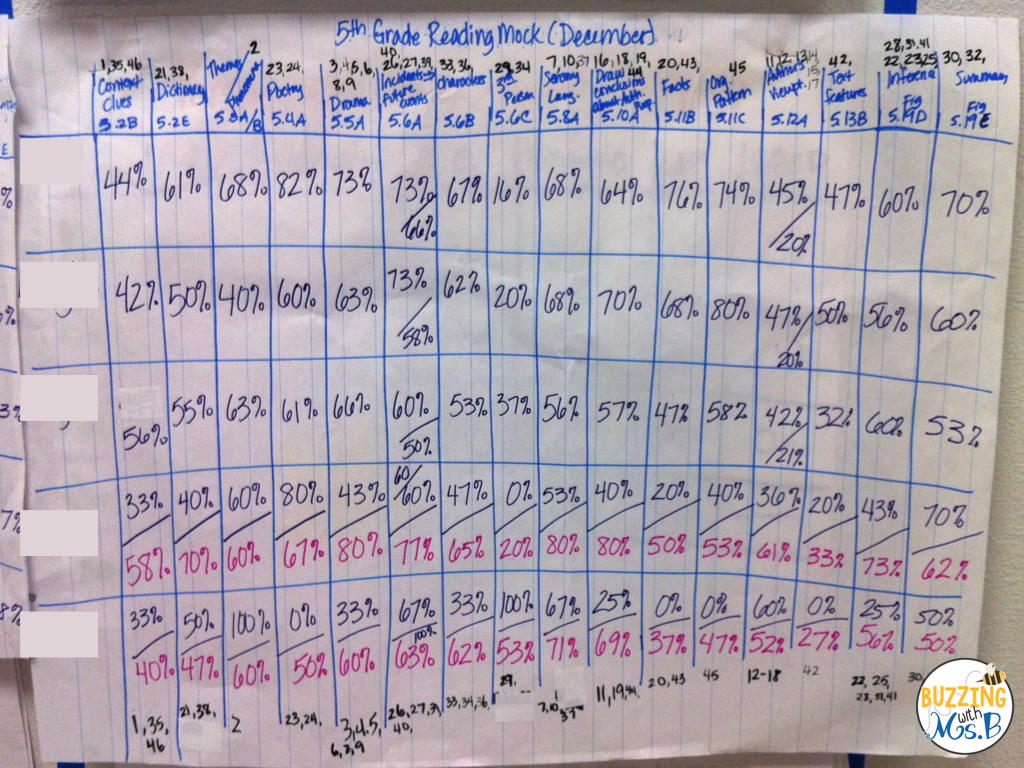 5th Grade Reading Mock (December)
1,35,46 Context Clues 5.2B
21,38, Dictionary 5.2E
2 Theme/ 5.3A/B
23,24, Poetry 5.4A
3,4,5,6, 8,9 Drama 5.5A
40, 26,27,39, Incidents→ Future Events 5.6A
33,36, characters 5.6B
29,34 3rd Person 5.6C
7,10,37 Sensory Lang. 5.8A
16,18,19, 44 Draw conclusions about Auth. Purp. 5.10A
20,43, Facts 5.11B
45 Org. Pattern 5.11C
11,12,13,14, 15, 17 Author's Viewpt. 5.12A
42, Text features 5.13B
28,31,41 22,23,25 Inference Fig 5.19D
30,32, Summary Fig 5.19E
44% 61% 68% 82% 73% 73% 67% 16% 68% 64% 76% 74% 45% 47% 60% 70%
66% 20%
42% 50% 40% 60% 63% 73% 62% 20% 68% 70% 68% 80% 47% 50% 56% 60%
58% 20%
56% 55% 63% 61% 66% 60% 53% 37% 56% 57% 47% 58% 42% 32% 60% 53%
50% 21%
33% 40% 60% 80% 43% 60/60% 47% 0% 53% 40% 20% 40% 36% 20% 43% 70%
58% 70% 60% 67% 80% 77% 65% 20% 80% 80% 50% 53% 61% 33% 73% 62%
33% 50% 100% 0% 33% 67% 33% 100% 67% 25% 0% 0% 60% 0% 25% 50%
100%
40% 47% 60% 50% 60% 63% 62% 53% 71% 69% 37% 47% 52% 27% 56% 50%
1,35, 46
21,38,
2
23,24,
3,4,5, 6,8,9
26,27,39 40,
33,34,36,
29,
7,10, 37
11,19,44,
20,43
45
12-18
42
22,25, 28,31,41
30
BUZZING
with
Ms.B